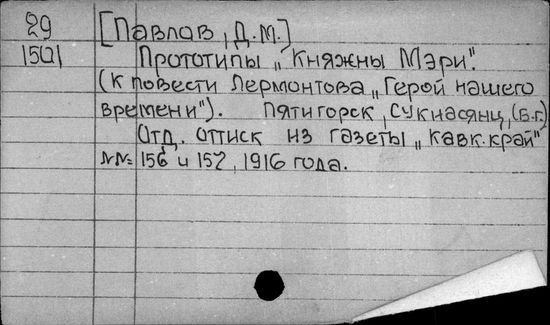 29 [Павлав, Д.М.]
1501 Прототипы „Княжны Мэри".
(к повести Лермонтова „Герой нашего
времени"). Пятигорск, Сукиасянц, (б.г.)
Отд. оттиск из газеты „Кавк.край"
№№ 156 и 157, 1916 года.